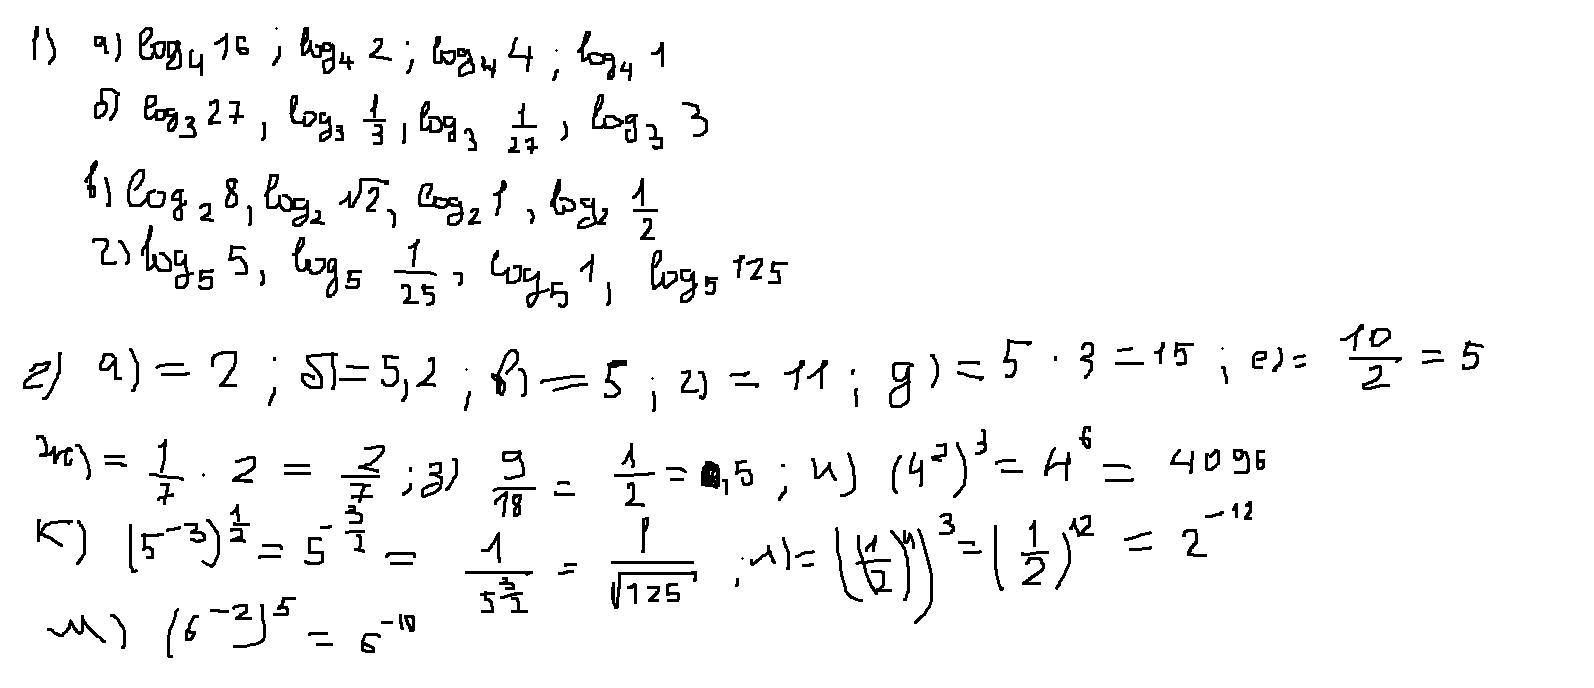 1) а) log₄ 16 ; log₄ 2 ; log₄ 4 ; log₄ 1
б) log₃ 27 , log₃ 1/3 , log₃ 1/27 , log₃ 3
в) log₂ 8 , log₂ √2 , log₂ 1 , log₂ 1/2
г) log₅ 5 , log₅ 1/25 , log₅ 1 , log₅ 125
2) а) = 2 ; б) = 5,2 ; в) = 5 ; г) = 11 ; д) = 5 · 3 = 15 ; е) = 10/2 = 5
ж) = 1/7 · 2 = 2/7 ; з) 9/18 = 1/2 = 0,5 ; и) (4²)³ = 4⁶ = 4096
к) (5⁻³)^(1/2) = 5^(-3/2) = 1/5^(3/2) = 1/√125 ; л) = ((1/2)⁴)³ = (1/2)¹² = 2⁻¹²
м) (6⁻²)⁵ = 6⁻¹⁰